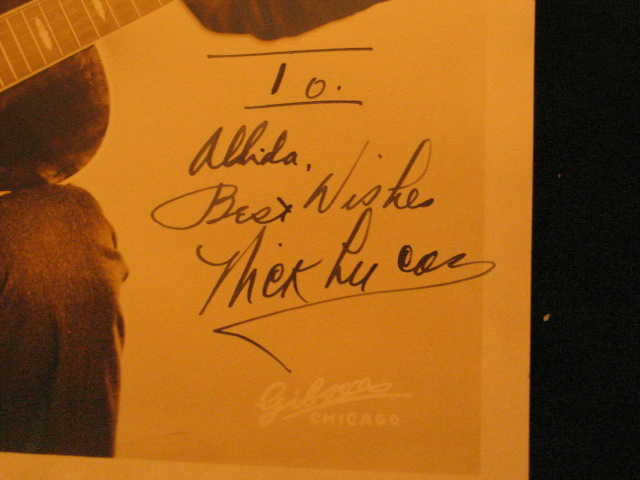 To.
Albida.
Best Wishes
Nick Lucas
Gibson
CHICAGO